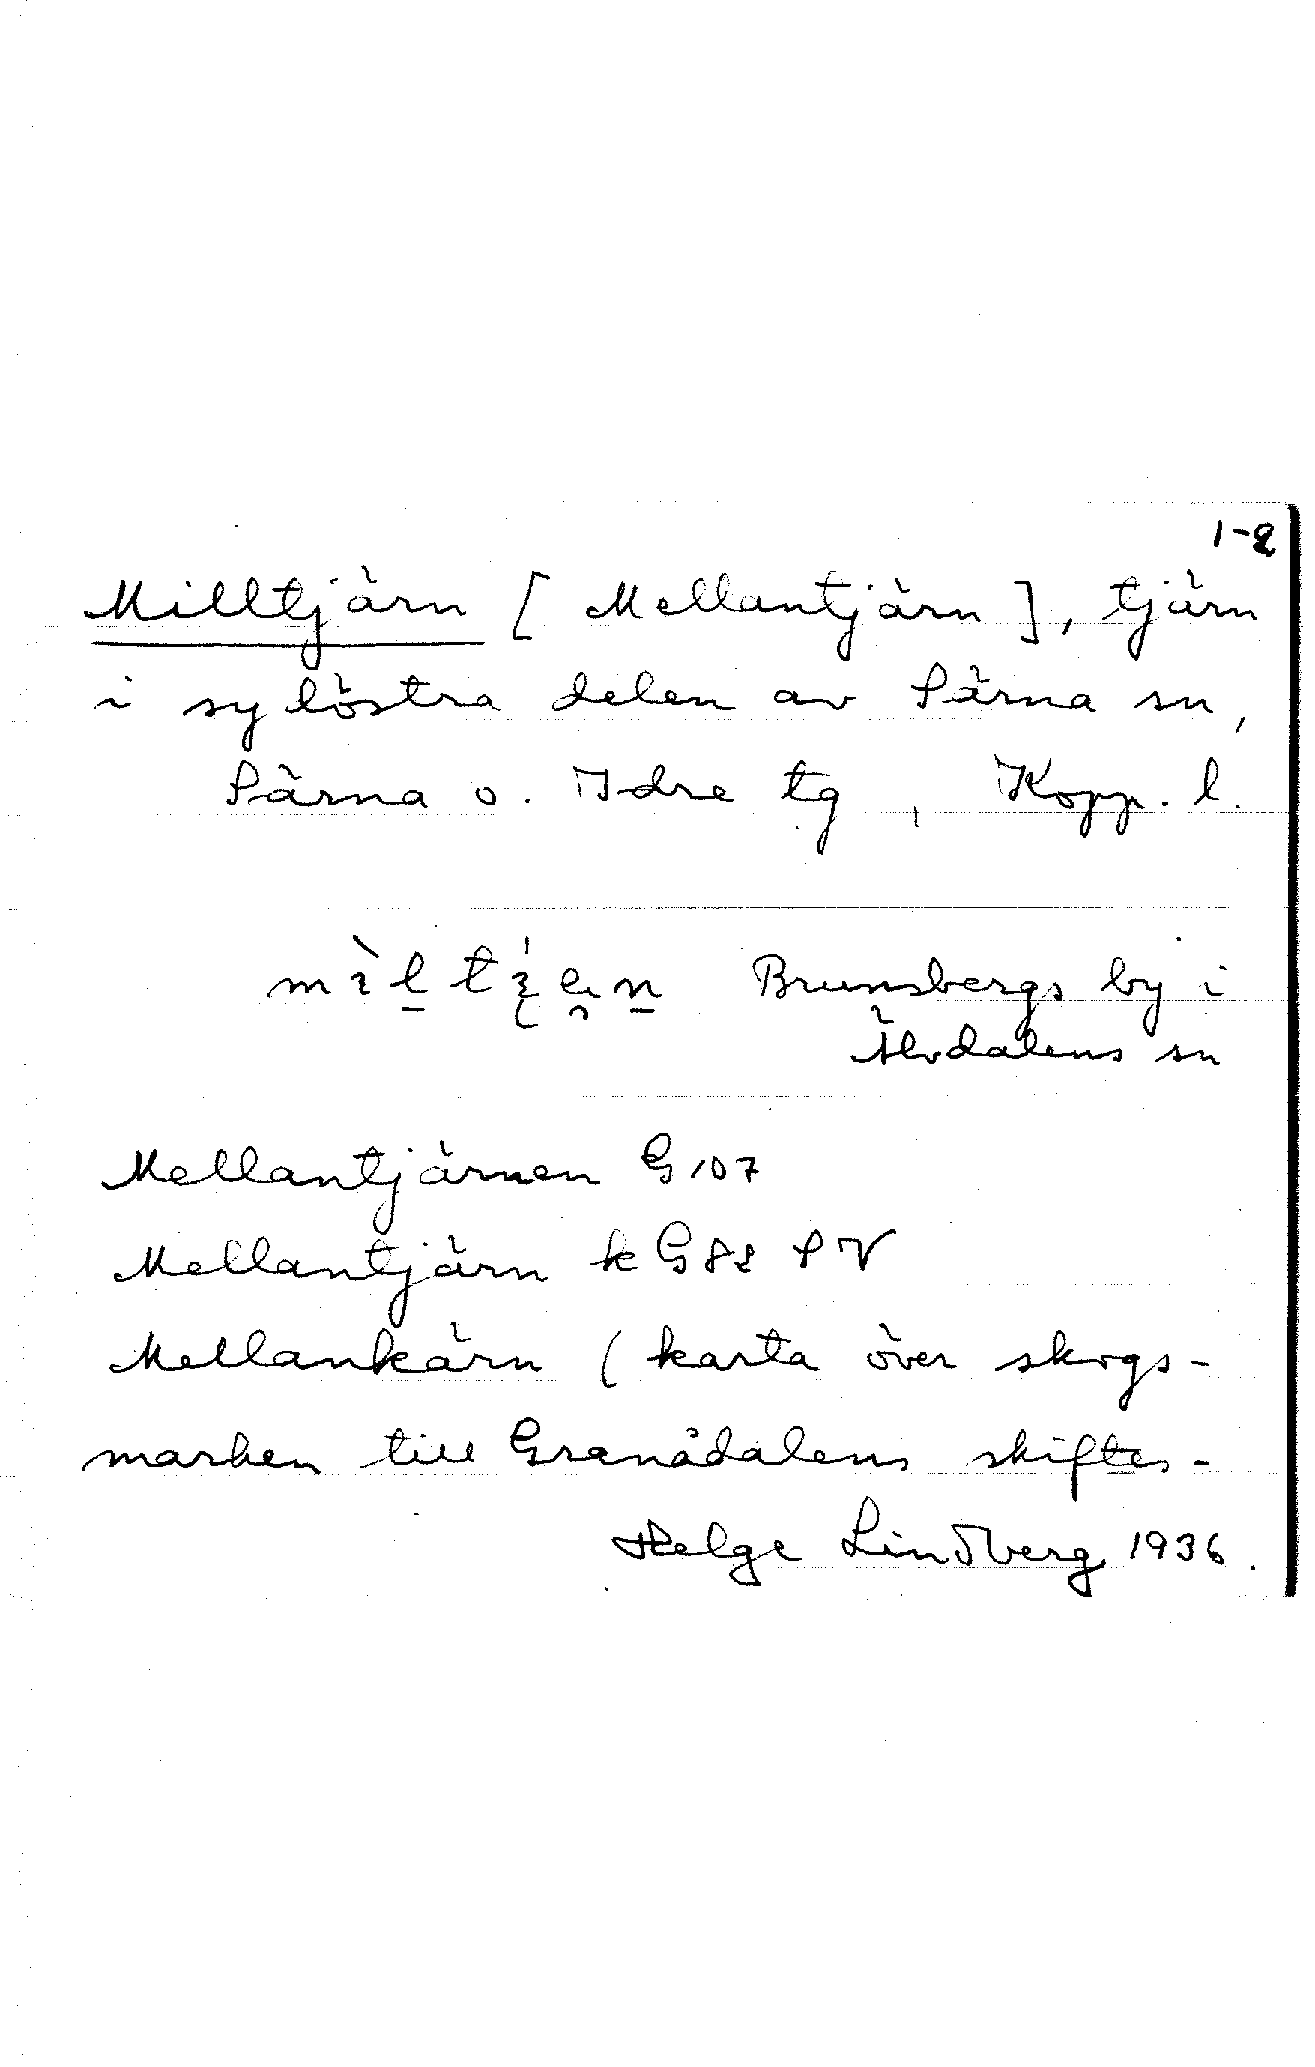 1-2
Milltjärn [ Mellantjärn ], tjärn
i sydöstra delen av Särna sn,
Särna o. Idre tg, Kopp. l.
Brunsbergs by i
Älvdalens sn
Mellantjärnen G 107
Mellantjärn k G 82 SV
Mellankärn ( karta över skogs-
marken till Granådalens skiftes-
Helge Lindberg 1936.